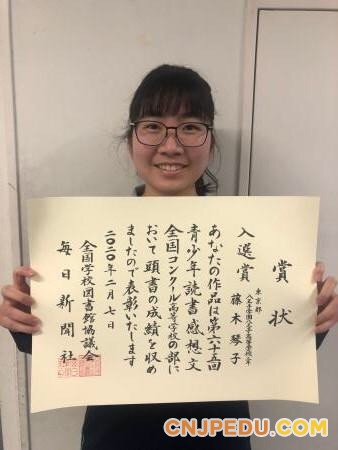 賞状
入選賞
東京都
藤木琴子
あなたの作品は第六十五回
青少年読書感想文
全国コンクール高等学校の部に
おいて頭書の成績を収め
ましたので表彰いたします
二〇二〇年二月七日
全国学校図書館協議会
毎日新聞社
CNJPEDU.COM